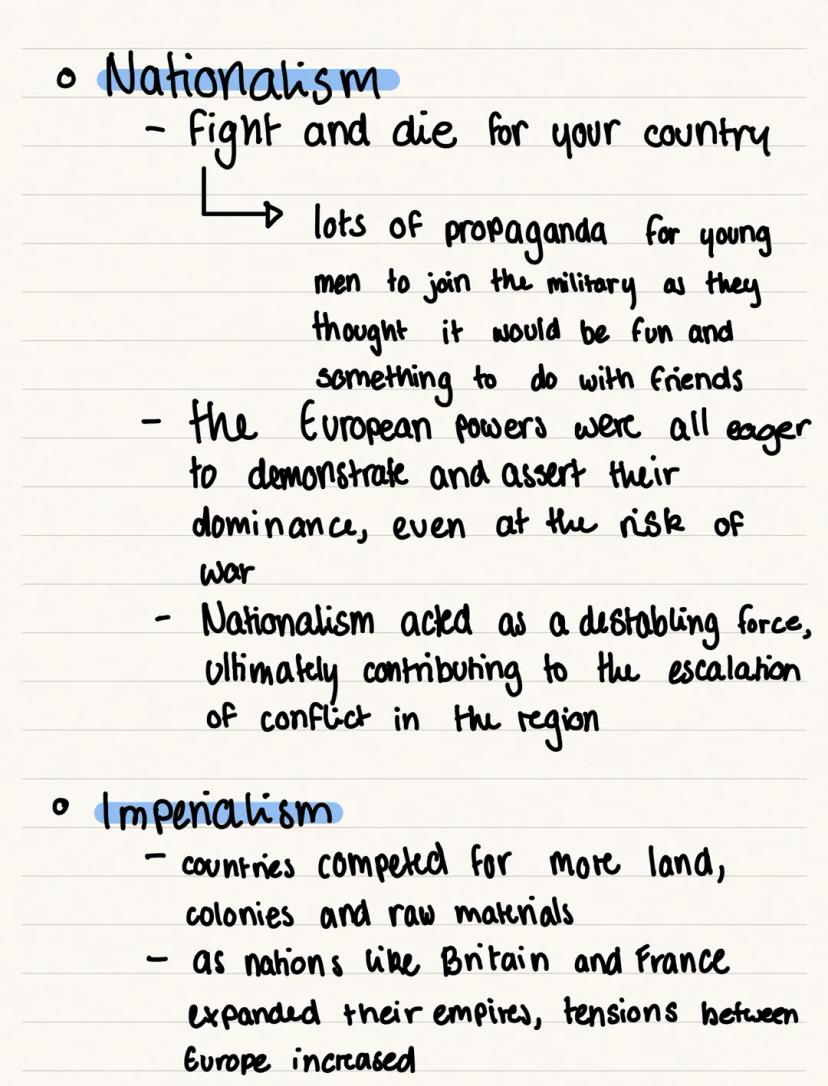 o Nationalism
- Fight and die for your country
lots of propaganda for young
men to join the military as they
thought it would be fun and
something to do with friends
- the European powers were all eager
to demonstrate and assert their
dominance, even at the risk of
war
- Nationalism acted as a destabling force,
ultimately contributing to the escalation
of conflict in the region
o Imperialism
- countries competed for more land,
colonies and raw materials
- as nations like Britain and France
expanded their empires, tensions between
Europe increased